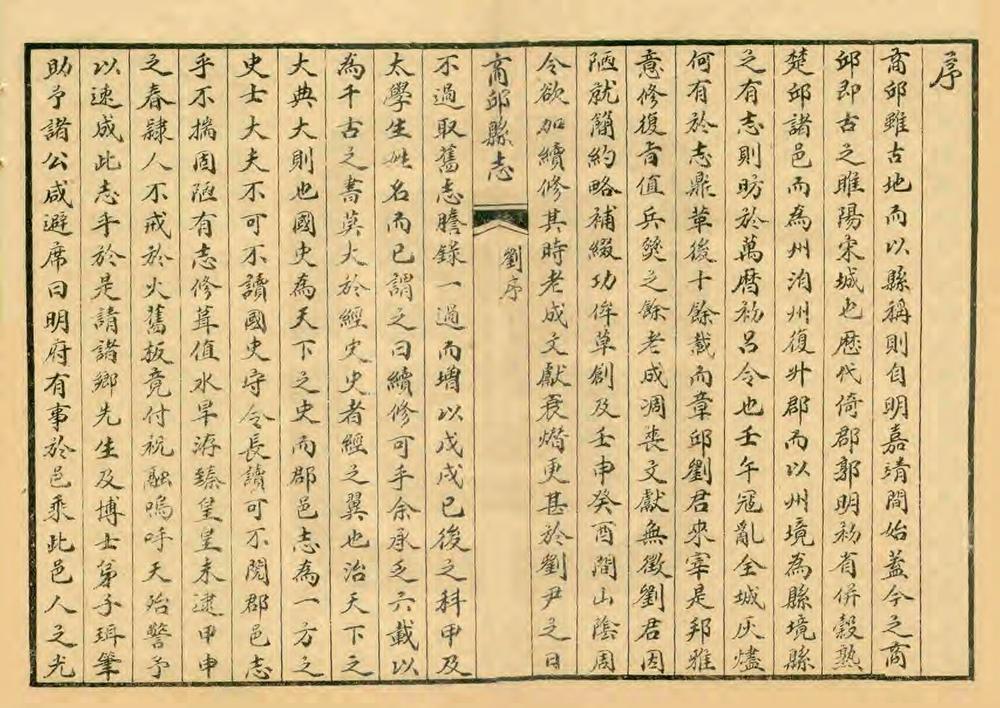 序
商邱雖古地而以縣稱則自明嘉靖間始蓋今之商
邱即古之睢陽宋城也歷代倚郡郭明初省併穀熟
楚邱諸邑而為州洎州復升郡而以州境為縣境縣
之有志則昉於萬曆初呂令也壬午冦亂全城灰燼
何有於志鼎革後十餘載而章邱劉君來宰是邦雅
意修復旹值兵燹之餘老成凋喪文獻無徵劉君因
陋就簡約略補綴功侔草創及壬申癸酉間山陰周
令欲加續修其時老成文獻衰熸更甚於劉尹之日
商邱縣志
劉序
不過取舊志謄錄一過而增以戊戌已後之科甲及
太學生姓名而已謂之曰續修可乎余承乏六載以
為千古之書莫大於經史史者經之翼也治天下之
大典大則也國史為天下之史而郡邑志為一方之
史士大夫不可不讀國史守令長讀可不閱郡邑志
乎不揣固陋有志修葺值水旱洊臻皇皇未逮甲申
之春隸人不戒於火舊板竟付祝融嗚呼天殆警予
以速成此志乎於是請諸鄉先生及博士弟子珥筆
助予諸公咸避席曰明府有事於邑乘此邑人之光